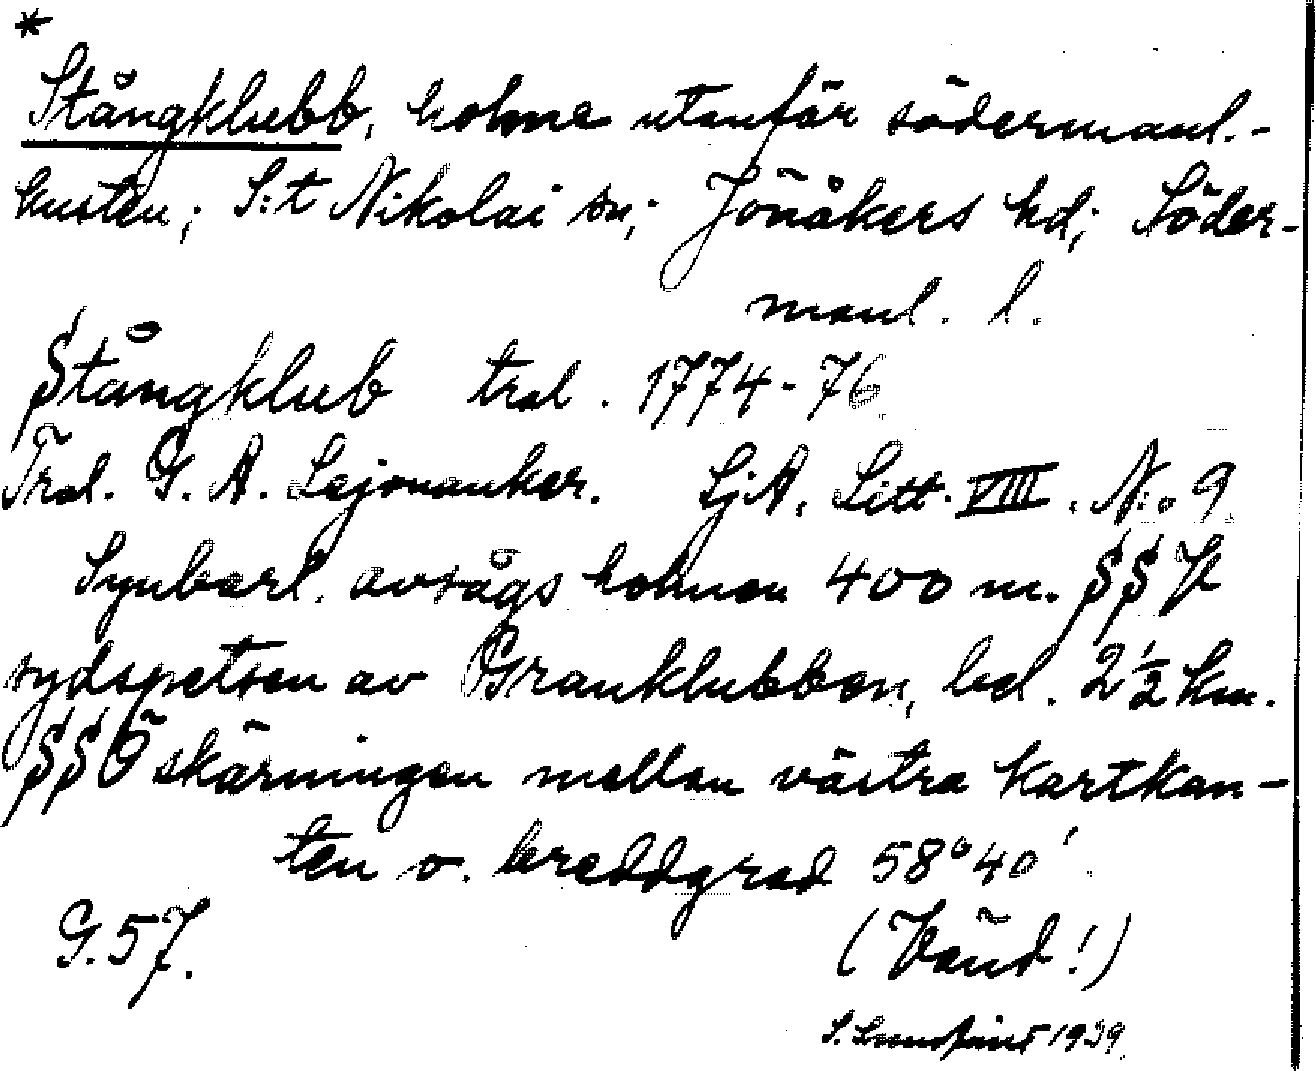 *
Stångklubb, holme utanför södermanl.-
kusten; S:t Nikolai sn; Jönåkers hd; Söder-
manl. l.
Stångklub tral. 1774-76
Tral. G. A. Lejonanker. SjA. Litt. VIII. No 9
Synbarl. avsågs holmen 400 m. §§V
sydspetsen av Granklubben, bel. 2½ km.
§§Ö skärningen mellan västra kartkan-
ten o. breddgrad 58°40'
G.57. (Vänd!)
1939